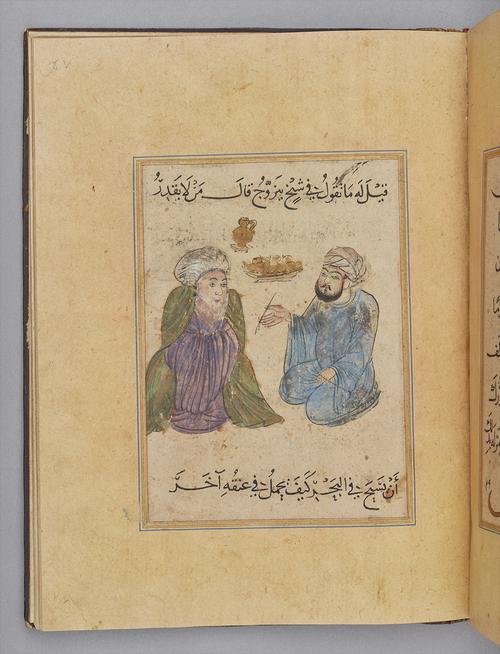 قِيْلَ لَهُ مَا تَقُولُ فِي شَيْخٍ يَتَزَوَّجُ قَالَ مَنْ لَا يَقْدِرُ
أَنْ يَسْبَحَ فِي الْبَحْرِ كَيْفَ يَحْمِلُ فِي عُنُقِهِ آخَرَ